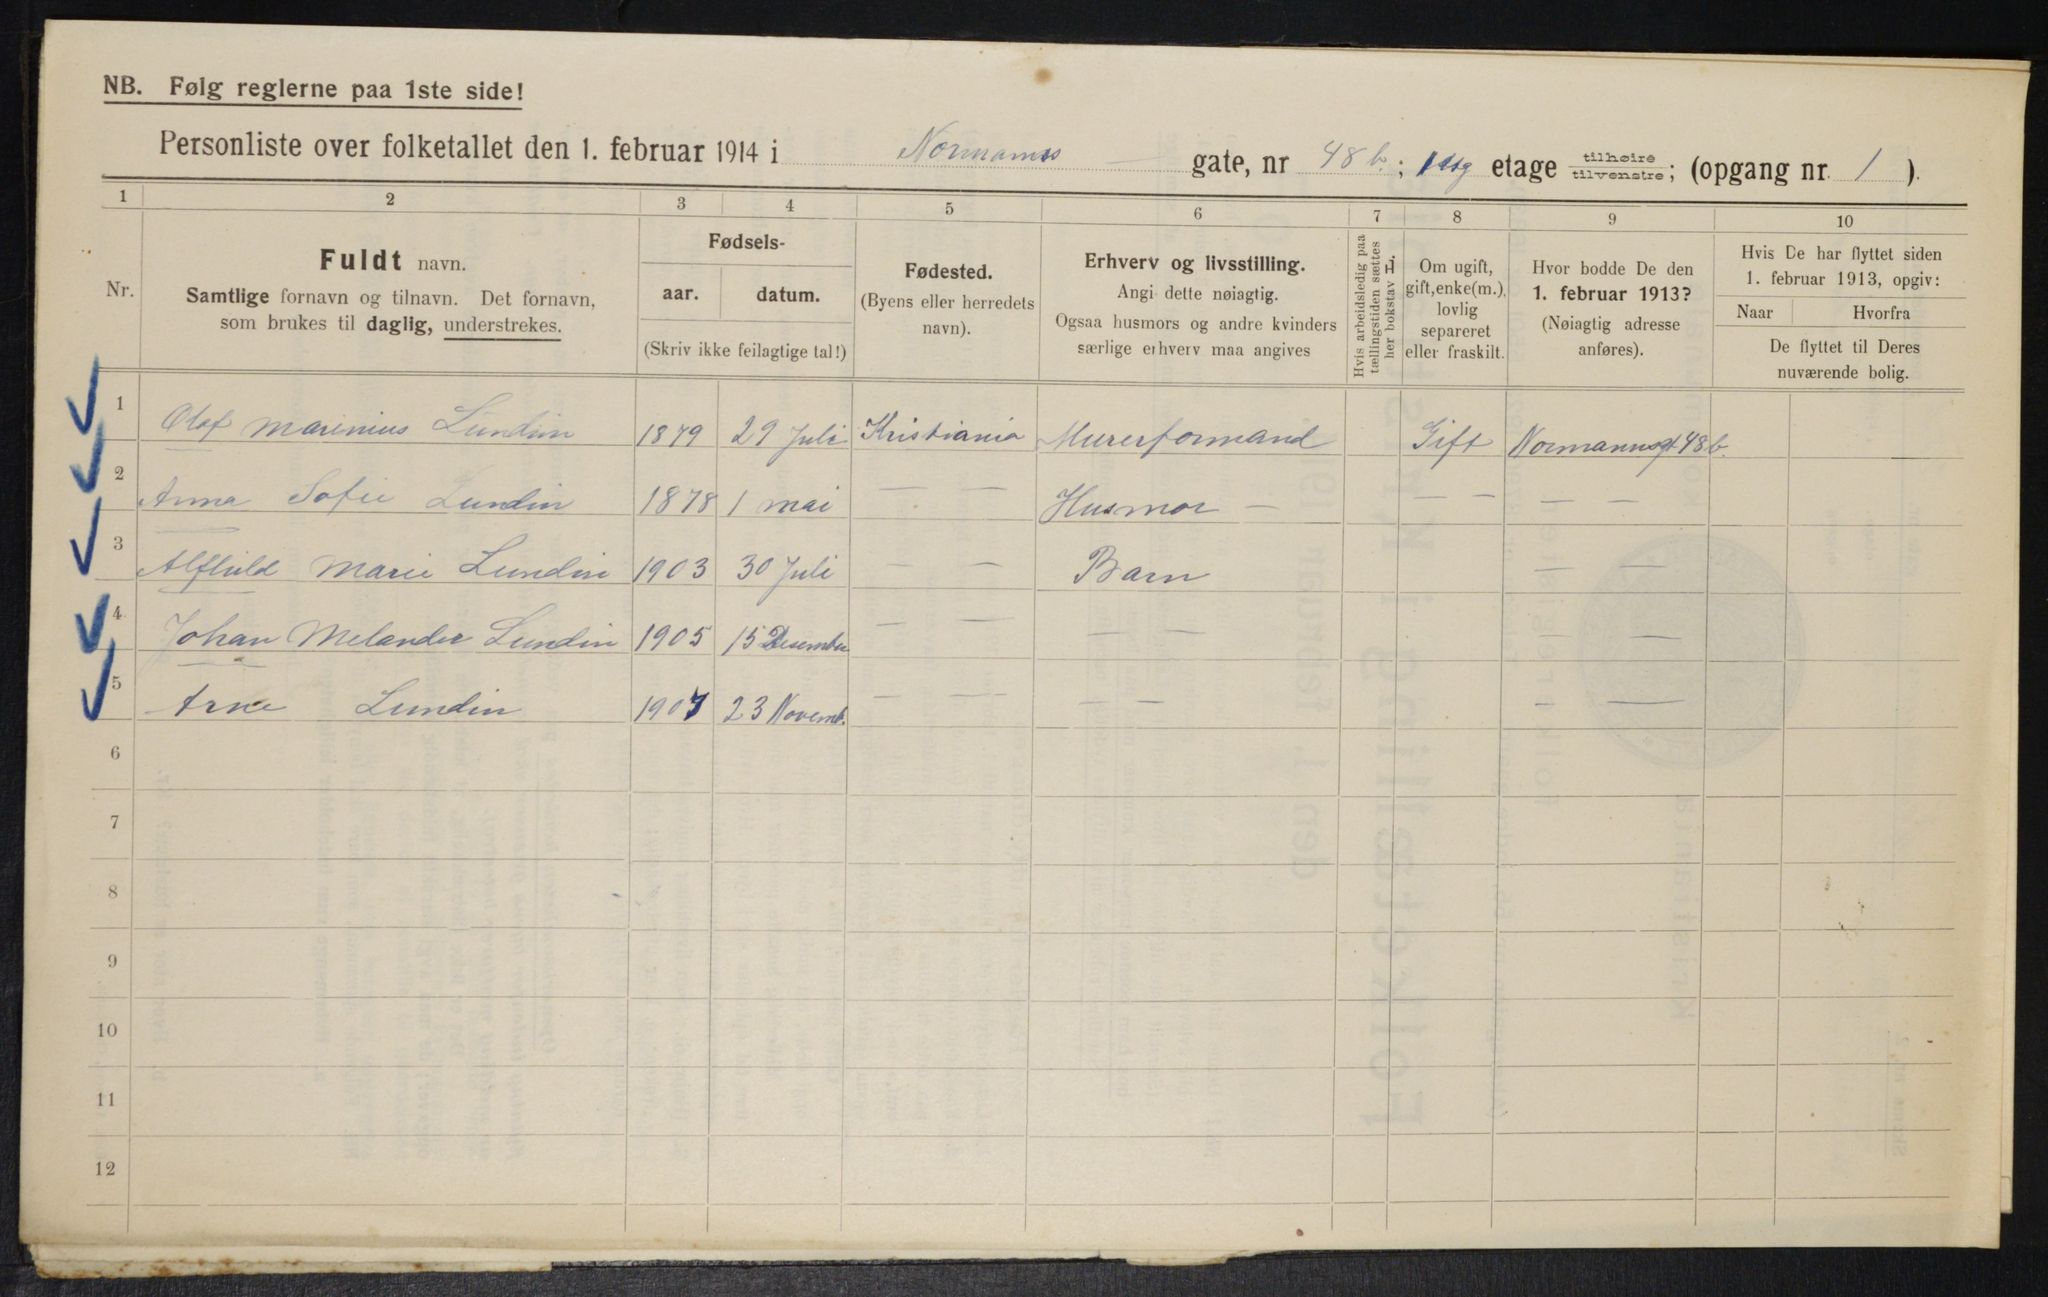 NB. Følg reglerne paa 1ste side!
Personliste over folketallet den 1. februar 1914 i Normanns gate, nr 48 b.; etage tilhøire tilvenstre; (opgang nr. 1 ).
1 2 3 4 5 6 7 8 9 10
Nr.
Fuldt navn.
Samtlige fornavn og tilnavn. Det fornavn,
som brukes til daglig, understrekes.
Fødsels-
aar. datum.
(Skriv ikke feilagtige tal!)
Fødested.
(Byens eller herredets
navn).
Erhverv og livsstilling.
Angi dette nøiagtig.
Ogsaa husmors og andre kvinders
særlige erhverv maa angives
Hvis arbeidsledig paa
tællingstiden sættes
her bokstav L.
Om ugift,
gift, enke(m.),
lovlig
separeret
eller fraskilt.
Hvor bodde De den
1. februar 1913?
(Nøiagtig adresse
anføres).
Hvis De har flyttet siden
1. februar 1913, opgiv:
Naar Hvorfra
De flyttet til Deres
nuværende bolig.
1 Olaf Marinius Lundin 1879 29 Juli Kristiania Murerformand Gift Normannsgt 48 b.
2 Anna Sofie Lundin 1878 1 mai — — Husmor — — — — —
3 Alfhild Marie Lundin 1903 30 Juli — — Barn — —
4 Johan Melander Lundin 1905 15 Desember — — — — — —
5 Arne Lundin 1907 23 Novemb. — — — — — —
6
7
8
9
10
11
12